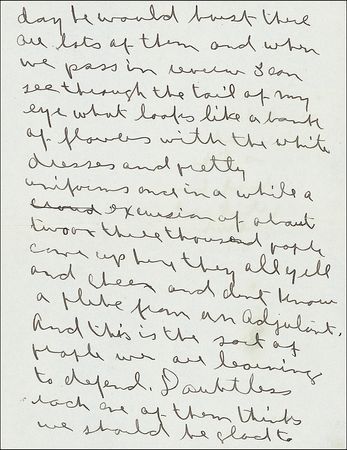 day he would burst there
are lots of them and when
we pass in review I can
see through the tail of my
eye what looks like a bank
of flowers with the white
dresses and pretty
uniforms once in a while a
crowd excursion of about
two or three thousand people
come up here they all yell
and cheer and dont know
a plebe from an Adjutant.
And this is the sort of
people we are learning
to defend. Doubtless
each one of them thinks
we should be glad to